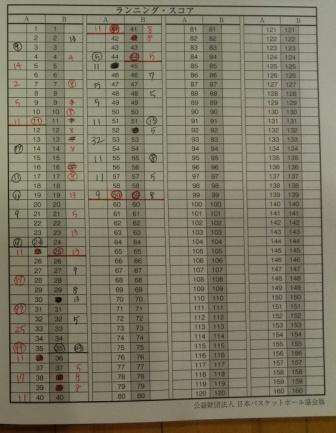 ランニング・スコア
A B A B A B A B
1 1 11 41 8 81 81 121 121
2 2 13 42 8 82 82 122 122
3 3 43 43 83 83 123 123
4 4 4 5 44 5 84 84 124 124
14 5 5 11 45 85 85 125 125
6 6 46 46 7 86 86 126 126
2 7 7 8 47 47 87 87 127 127
8 8 48 48 5 88 88 128 128
5 9 9 8 5 49 49 89 89 129 129
10 10 8 50 50 90 90 130 130
11 11 11 51 51 13 91 91 131 131
12 12 8 52 5 92 92 132 132
13 13 32 53 53 93 93 133 133
14 14 8 54 54 94 94 134 134
15 15 11 55 55 8 95 95 135 135
16 16 56 56 96 96 136 136
17 17 8 11 57 57 5 97 97 137 137
18 18 58 58 98 98 138 138
19 19 13 9 59 59 8 99 99 139 139
20 20 60 60 100 100 140 140
9 21 21 5 61 61 101 101 141 141
22 22 62 62 102 102 142 142
23 23 13 63 63 103 103 143 143
24 24 64 64 104 104 144 144
11 25 13 65 65 105 105 145 145
26 26 66 66 106 106 146 146
27 27 9 67 67 107 107 147 147
28 28 68 68 108 108 148 148
29 29 8 69 69 109 109 149 149
30 13 70 70 110 110 150 150
31 31 71 71 111 111 151 151
32 32 5 72 72 112 112 152 152
25 33 33 73 73 113 113 153 153
34 34 74 74 114 114 154 154
35 35 75 75 115 115 155 155
11 36 76 76 116 116 156 156
37 37 5 77 77 117 117 157 157
17 38 9 78 78 118 118 158 158
39 8 79 79 119 119 159 159
11 40 40 80 80 120 120 160 160
公益財団法人 日本バスケットボール協会版